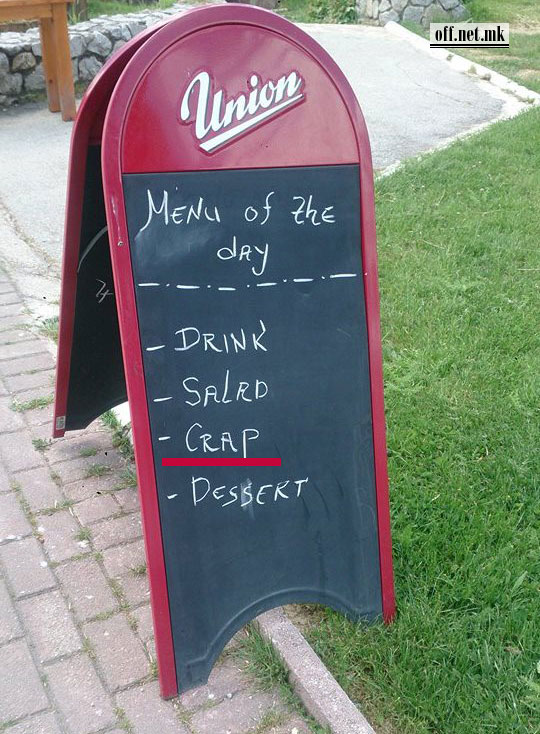 off.net.mk
Union
MENU of the
day
- DRINK
- SALAD
- CRAP
- DESSERT